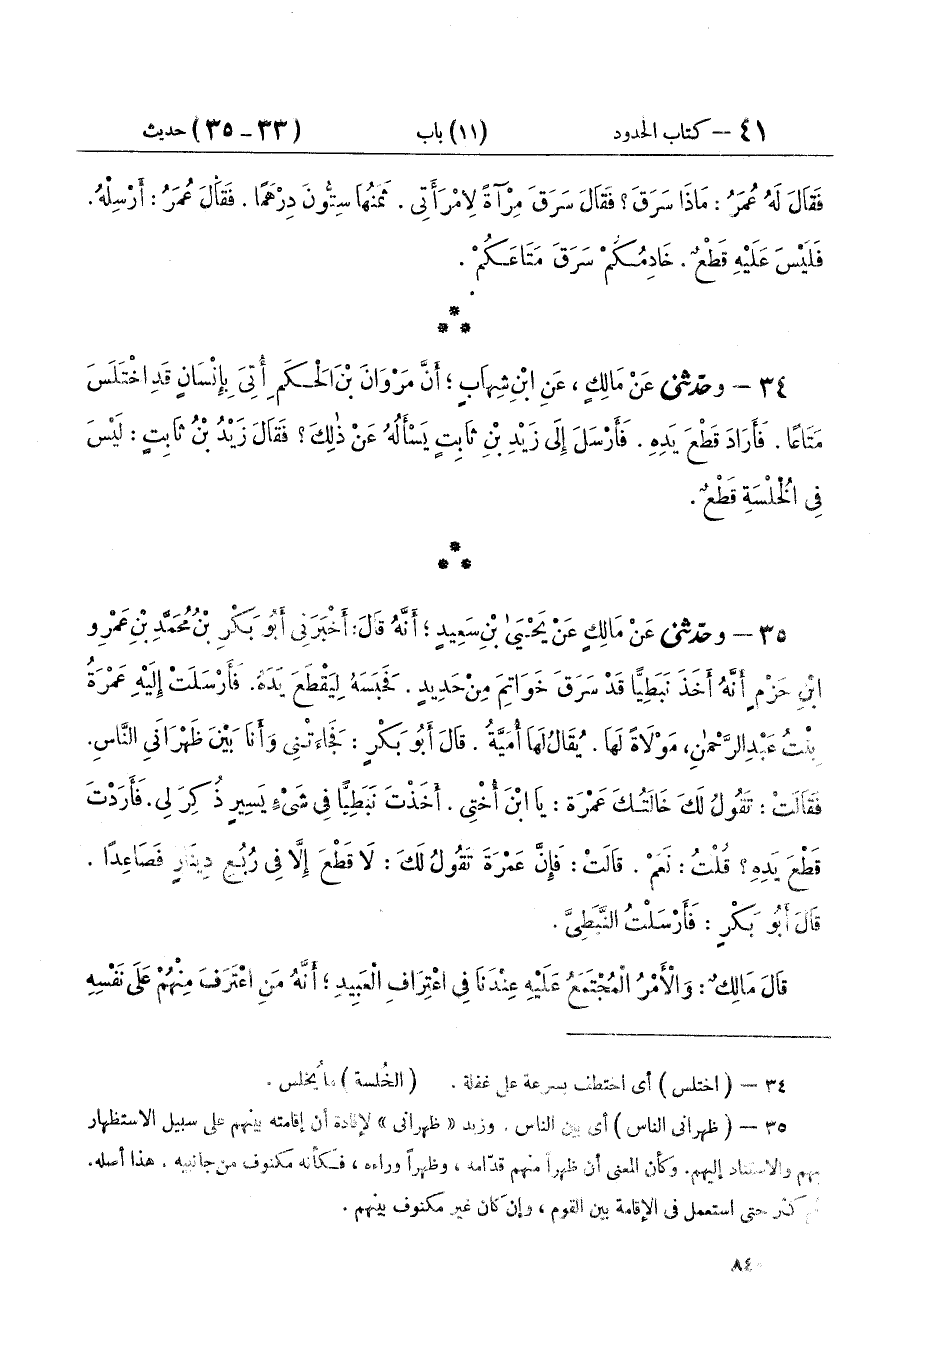 ٤١ – كتاب الحدود (١١) باب (٣٣ – ٣٥) حديث
فَقَالَ لَهُ عُمَرُ : مَاذَا سَرَقَ ؟ فَقَالَ سَرَقَ مِرْآةً لِامْرَأَتِى . ثَمَنُهَا سِتُّونَ دِرْهَمًا . فَقَالَ عُمَرُ : أَرْسِلْهُ .
فَلَيْسَ عَلَيْهِ قَطْعٌ . خَادِمُكُمْ سَرَقَ مَتَاعَكُمْ .
***
٣٤ – وحدّثنى عَنْ مَالِكٍ ، عَنِ ابْنِ شِهَابٍ ؛ أَنَّ مَرْوَانَ بْنَ الْحَكَمِ أُتِىَ بِإِنْسَانٍ قَدِ اخْتَلَسَ
مَتَاعًا . فَأَرَادَ قَطْعَ يَدِهِ . فَأَرْسَلَ إِلَى زَيْدِ بْنِ ثَابِتٍ يَسْأَلُهُ عَنْ ذٰلِكَ ؟ فَقَالَ زَيْدُ بْنُ ثَابِتٍ : لَيْسَ
فِى الْخُلْسَةِ قَطْعٌ .
***
٣٥ – وحدّثنى عَنْ مَالِكٍ عَنْ يَحْيَىٰ بْنِ سَعِيدٍ ؛ أَنَّهُ قَالَ : أَخْبَرَنِى أَبُو بَكْرِ بْنُ مُحَمَّدِ بْنِ عَمْرِو
ابْنِ حَزْمٍ أَنَّهُ أَخَذَ نَبَطِيًّا قَدْ سَرَقَ خَوَاتِمَ مِنْ حَدِيدٍ . فَحَبَسَهُ لِيَقْطَعَ يَدَهُ . فَأَرْسَلَتْ إِلَيْهِ عَمْرَةُ
بِنْتُ عَبْدِ الرَّحْمٰنِ ، مَوْلَاةً لَهَا . يُقَالُ لَهَا أُمَيَّةُ . قَالَ أَبُو بَكْرٍ : فَجَاءَتْنِى وَأَنَا بَيْنَ ظَهْرَانَىِ النَّاسِ .
فَقَالَتْ : تَقُولُ لَكَ خَالَتُكَ عَمْرَةُ : يَا ابْنَ أُخْتِى . أَخَذْتَ نَبَطِيًّا فِى شَىْءٍ يَسِيرٍ ذُكِرَ لِى . فَأَرَدْتَ
قَطْعَ يَدِهِ ؟ قُلْتُ : نَعَمْ . قَالَتْ : فَإِنَّ عَمْرَةَ تَقُولُ لَكَ : لَا قَطْعَ إِلَّا فِى رُبُعِ دِينَارٍ فَصَاعِدًا .
قَالَ أَبُو بَكْرٍ : فَأَرْسَلْتُ النَّبَطِىَّ .
قَالَ مَالِكٌ : وَالْأَمْرُ الْمُجْتَمَعُ عَلَيْهِ عِنْدَنَا فِى اعْتِرَافِ الْعَبِيدِ ؛ أَنَّهُ مَنِ اعْتَرَفَ مِنْهُمْ عَلَى نَفْسِهِ
٣٤ – ( اختلس ) أى اختطف بسرعة على غفلة . ( الخُلسة ) ما يُخلس .
٣٥ – ( ظهرانى الناس ) أى بين الناس . وزيد « ظهرانى » لإفادة أن إقامته بينهم على سبيل الاستظهار
بهم والاستناد إليهم . وكأن المعنى أن ظهراً منهم قدّامه ، وظهراً وراءه ، فكأنه مكنوف من جانبيه . هذا أصله .
ثم كثر حتى استعمل فى الإقامة بين القوم ، وإن كان غير مكنوف بينهم .
٨٤٠